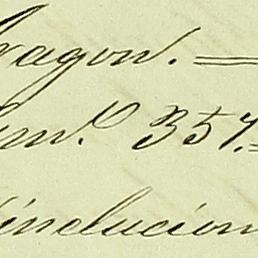 ragon. =
um.º 357.=
inclucion